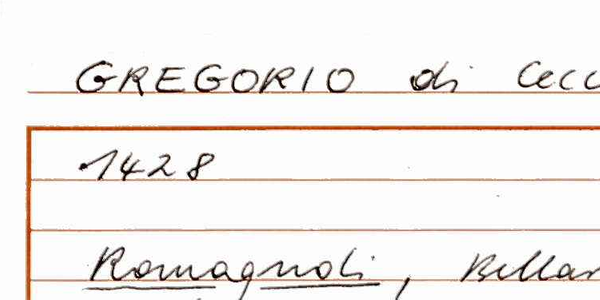 GREGORIO di Cecc
1428
Romagnoli, Bellar